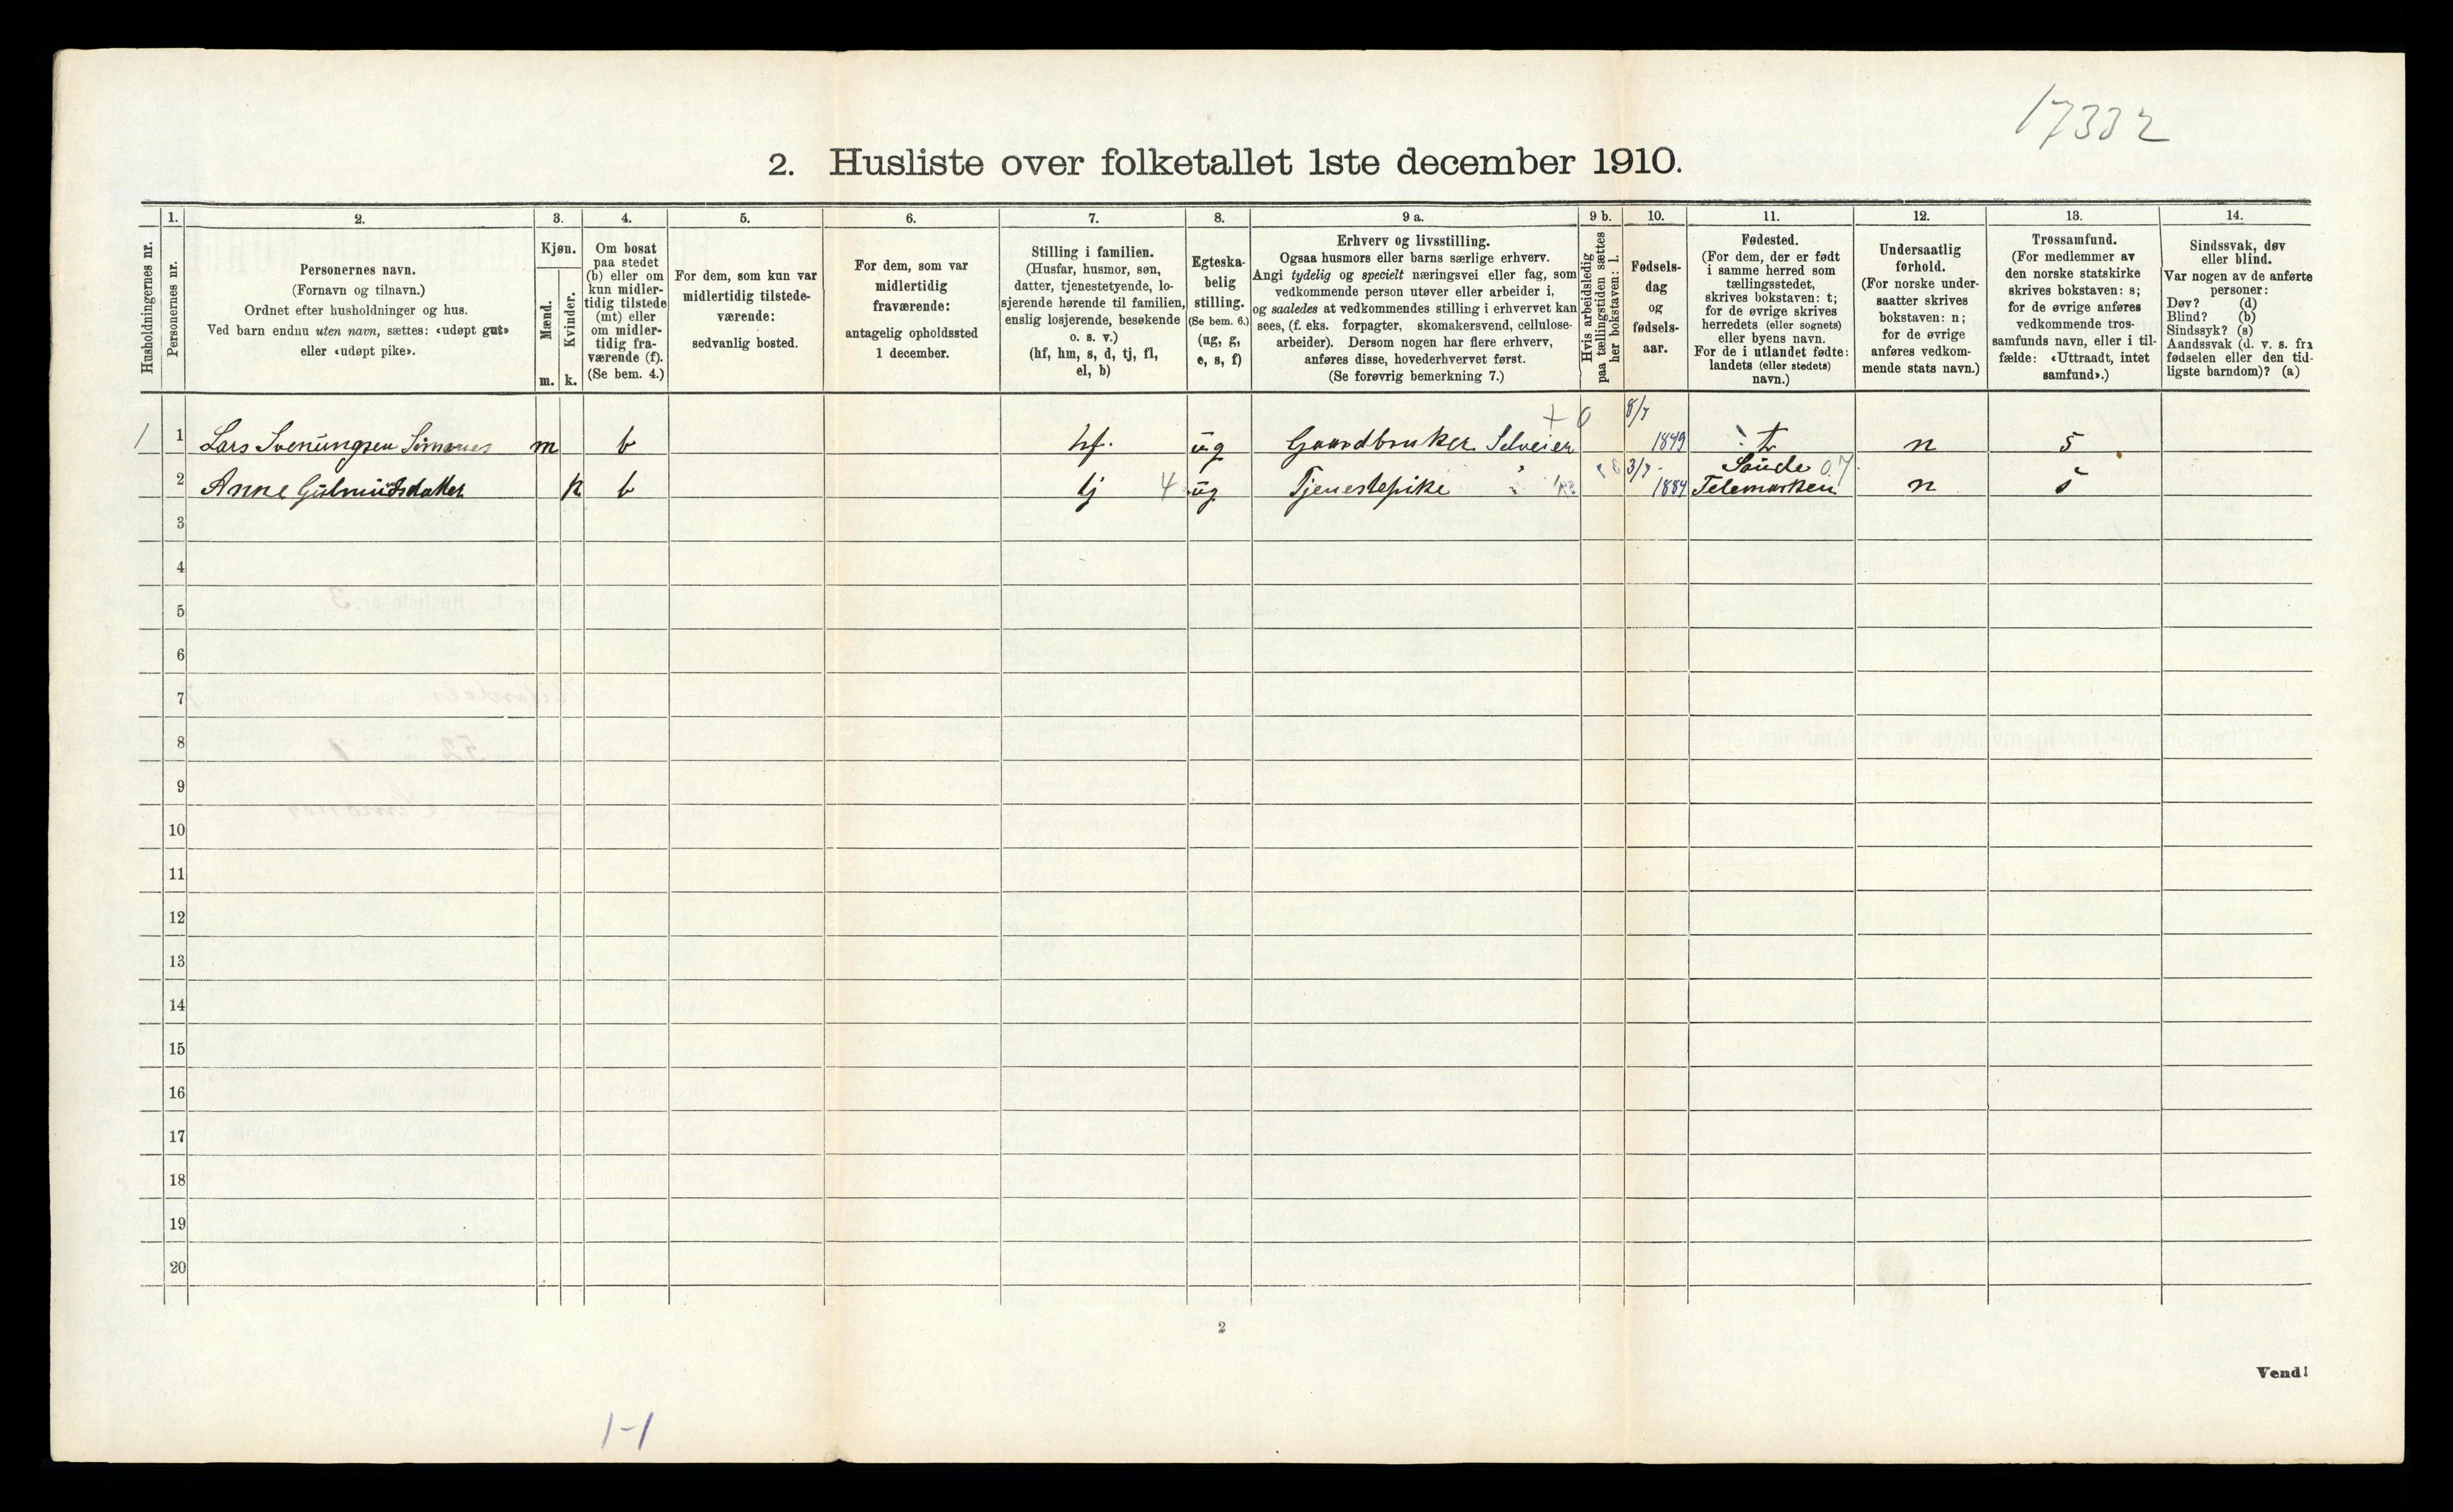 17332
2. Husliste over folketallet 1ste december 1910.
Husholdningernes nr.
1.
Personernes nr.
2.
Personernes navn.
(Fornavn og tilnavn.)
Ordnet efter husholdninger og hus.
Ved barn endnu uten navn, sættes: «udøpt gut»
eller «udøpt pike».
3.
Kjøn.
Mænd.
Kvinder.
m. k.
4.
Om bosat
paa stedet
(b) eller om
kun midler-
tidig tilstede
(mt) eller
om midler-
tidig fra-
værende (f).
(Se bem. 4.)
5.
For dem, som kun var
midlertidig tilstede-
værende:
sedvanlig bosted.
6.
For dem, som var
midlertidig
fraværende:
antagelig opholdssted
1 december.
7.
Stilling i familien.
(Husfar, husmor, søn,
datter, tjenestetyende, lo-
sjerende hørende til familien,
enslig losjerende, besøkende
o. s. v.)
(hf, hm, s, d, tj, fl,
el, b)
8.
Egteska-
belig
stilling.
(Se bem. 6.)
(ug, g,
e, s, f)
9 a.
Erhverv og livsstilling.
Ogsaa husmors eller barns særlige erhverv.
Angi tydelig og specielt næringsvei eller fag, som
vedkommende person utøver eller arbeider i,
og saaledes at vedkommendes stilling i erhvervet kan
sees, (f. eks. forpagter, skomakersvend, cellulose-
arbeider). Dersom nogen har flere erhverv,
anføres disse, hovederhvervet først.
(Se forøvrig bemerkning 7.)
9 b.
Hvis arbeidsledig
paa tællingstiden sættes
her bokstaven: l.
10.
Fødsels-
dag
og
fødsels-
aar.
11.
Fødested.
(For dem, der er født
i samme herred som
tællingsstedet,
skrives bokstaven: t;
for de øvrige skrives
herredets (eller sognets)
eller byens navn.
For de i utlandet fødte:
landets (eller stedets)
navn.)
12.
Undersaatlig
forhold.
(For norske under-
saatter skrives
bokstaven: n;
for de øvrige
anføres vedkom-
mende stats navn.)
13.
Trossamfund.
(For medlemmer av
den norske statskirke
skrives bokstaven: s;
for de øvrige anføres
vedkommende tros-
samfunds navn, eller i til-
fælde: «Uttraadt, intet
samfund».)
14.
Sindssvak, døv
eller blind.
Var nogen av de anførte
personer:
Døv? (d)
Blind? (b)
Sindssyk? (s)
Aandssvak (d. v. s. fra
fødselen eller den tid-
ligste barndom)? (a)
+ 0 8/7
1 1 Lars Svenungsen m b hf. ug Gaardbruker Selveier 1849 t n s
3/7 Saude 07
2 Anne Gudmundsdatter k b tj 4 ug Tjenestepike 1884 Telemarken n s
3
4
5
6
7
8
9
10
11
12
13
14
15
16
17
18
19
20
2
Vend!
1-1